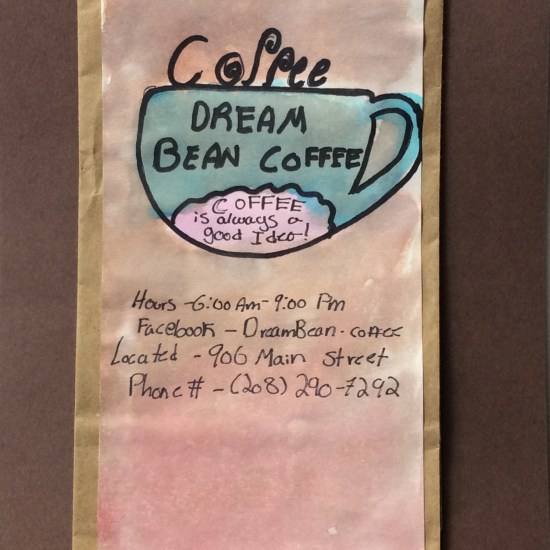 Coffee
DREAM
BEAN COFFEE
COFFEE
is always a
good Idea!
Hours - 6:00 Am - 9:00 Pm
Facebook - DreamBean-coffee
Located - 906 Main Street
Phone # - (208) 290-7292